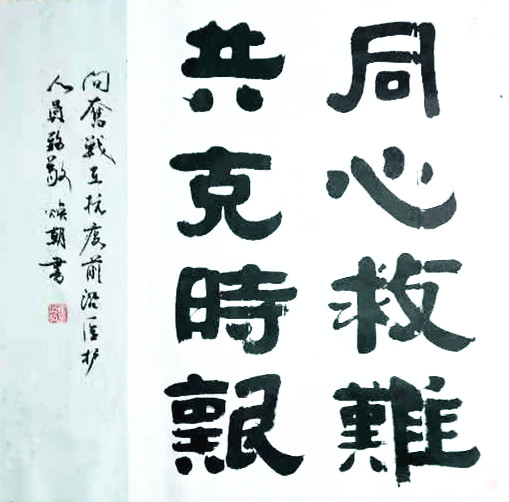 同心救難
共克時艱
向奮戰在抗疫前沿医护
人員致敬 焕朝書